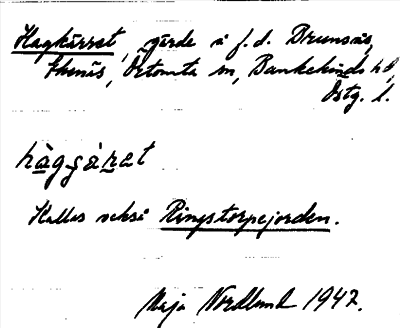 Hagkärret, gärde å f.d. Brunsäs,
Ekenäs, Örtomta sn, Bankekinds hd,
Östg. l.
hàggàrat
Kallas också Ringstorpejorden.
Maja Nordlund 1947.